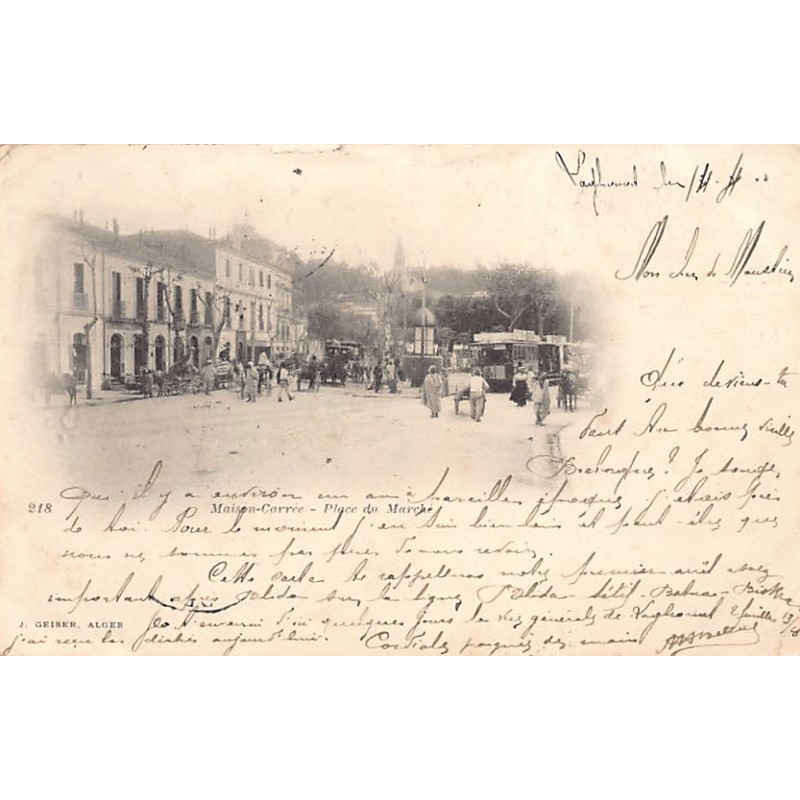 Laghouat
Mon cher
Que deviens-tu
dans ta bonne vieille
Bretagne? Je songe
Qu'il y a environ un an à pareilles époques j'étais près
218 Maison-Carrée - Place du Marché
de toi. Pour le moment j'en suis bien loin et peut-être que
nous ne sommes pas près de nous revoir.
Cette carte te rappellera notre premier arrêt assez
important après Blida sur la ligne Blida Sétif-Batna-Biskra
J. GEISER, ALGER
Je t'enverrai d'ici quelques jours la vues générales de Laghouat
j'ai reçu les clichés aujourd'hui. Cordiales poignées de mains